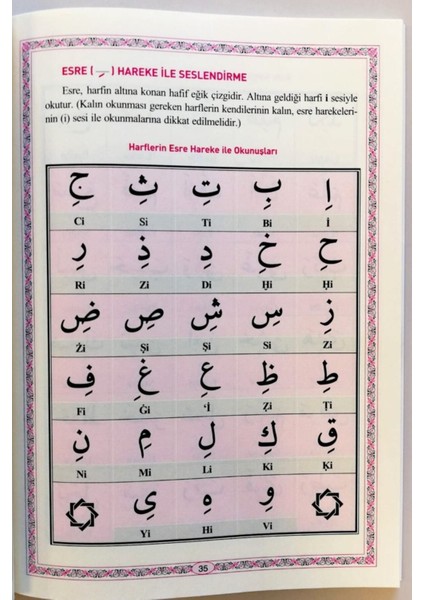 ESRE ( ـِ ) HAREKE İLE SESLENDİRME
Esre, harfin altına konan hafif eğik çizgidir. Altına geldiği harfi i sesiyle
okutur. (Kalın okunması gereken harflerin kendilerinin kalın, esre harekeleri-
nin (i) sesi ile okunmalarına dikkat edilmelidir.)
Harflerin Esre Hareke ile Okunuşları
اِ بِ تِ ثِ جِ
Ci Si Ti Bi İ
حِ خِ دِ ذِ رِ
Ri Zi Di Ḫi Ḥi
زِ سِ شِ صِ ضِ
Żi Şi Şi Si Zi
طِ ظِ عِ غِ فِ
Fi Ġi ‘İ Ẓi Ṭi
قِ كِ لِ مِ نِ
Ni Mi Li Ki Ḳi
وِ هِ ىِ
Yi Hi Vi
35